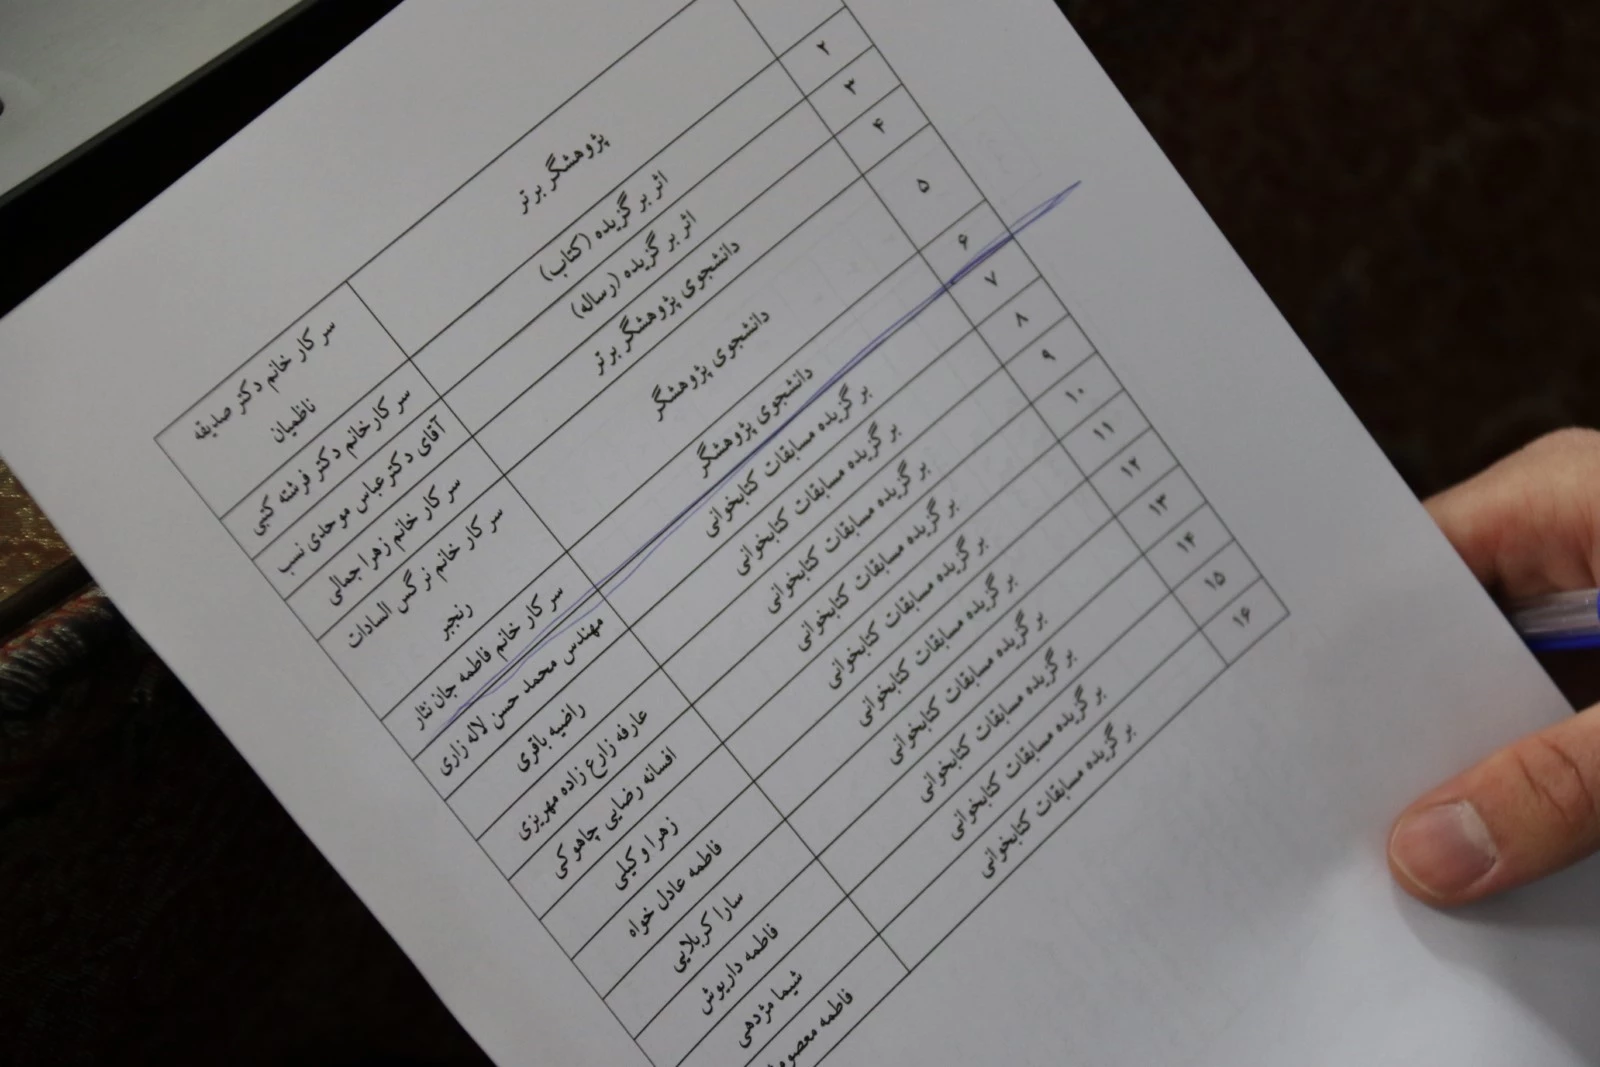 پژوهشگر برتر سرکار خانم دکتر صدیقه
ناظمیان
۲ اثر برگزیده (کتاب) سرکار خانم دکتر فرشته کتبی
۳ اثر برگزیده (رساله) آقای دکتر عباس موحدی نسب
۴ دانشجوی پژوهشگر برتر سرکار خانم زهرا جمالی
۵ دانشجوی پژوهشگر سرکار خانم نرگس السادات
رنجبر
۶ دانشجوی پژوهشگر سرکار خانم فاطمه جان نثار
۷ برگزیده مسابقات کتابخوانی مهندس محمد حسن لاله زاری
۸ برگزیده مسابقات کتابخوانی راضیه باقری
۹ برگزیده مسابقات کتابخوانی عارفه زارع زاده مهریزی
۱۰ برگزیده مسابقات کتابخوانی افسانه رضایی چاهوکی
۱۱ برگزیده مسابقات کتابخوانی زهرا وکیلی
۱۲ برگزیده مسابقات کتابخوانی فاطمه عادل خواه
۱۳ برگزیده مسابقات کتابخوانی سارا کربلایی
۱۴ برگزیده مسابقات کتابخوانی فاطمه داریوش
۱۵ برگزیده مسابقات کتابخوانی شیما مژدهی
۱۶ برگزیده مسابقات کتابخوانی فاطمه